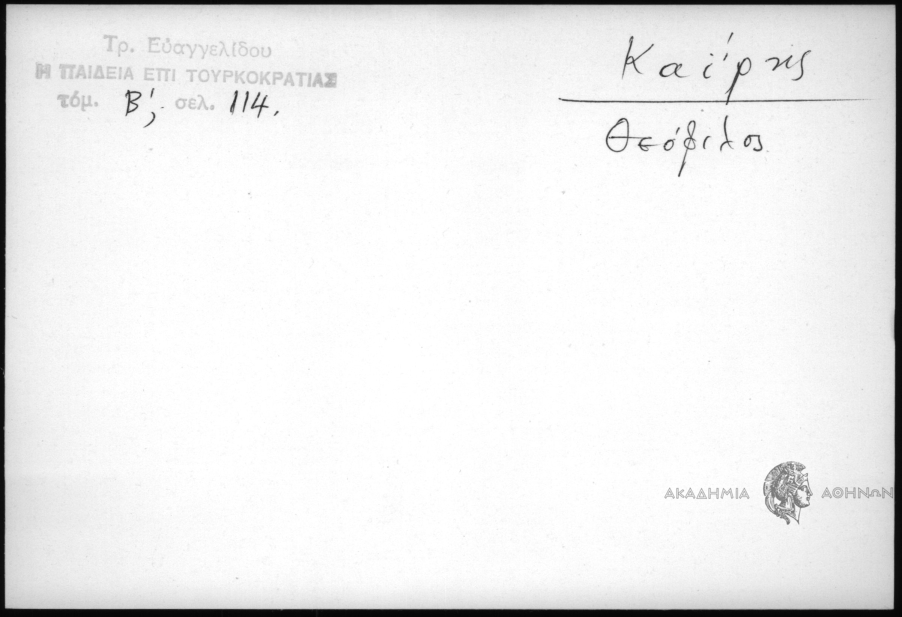 Τρ. Εὐαγγελίδου
Η ΠΑΙΔΕΙΑ ΕΠΙ ΤΟΥΡΚΟΚΡΑΤΙΑΣ
τόμ. Β΄, σελ. 114.
Καΐρης
Θεόφιλος
ΑΚΑΔΗΜΙΑ ΑΘΗΝΩΝ